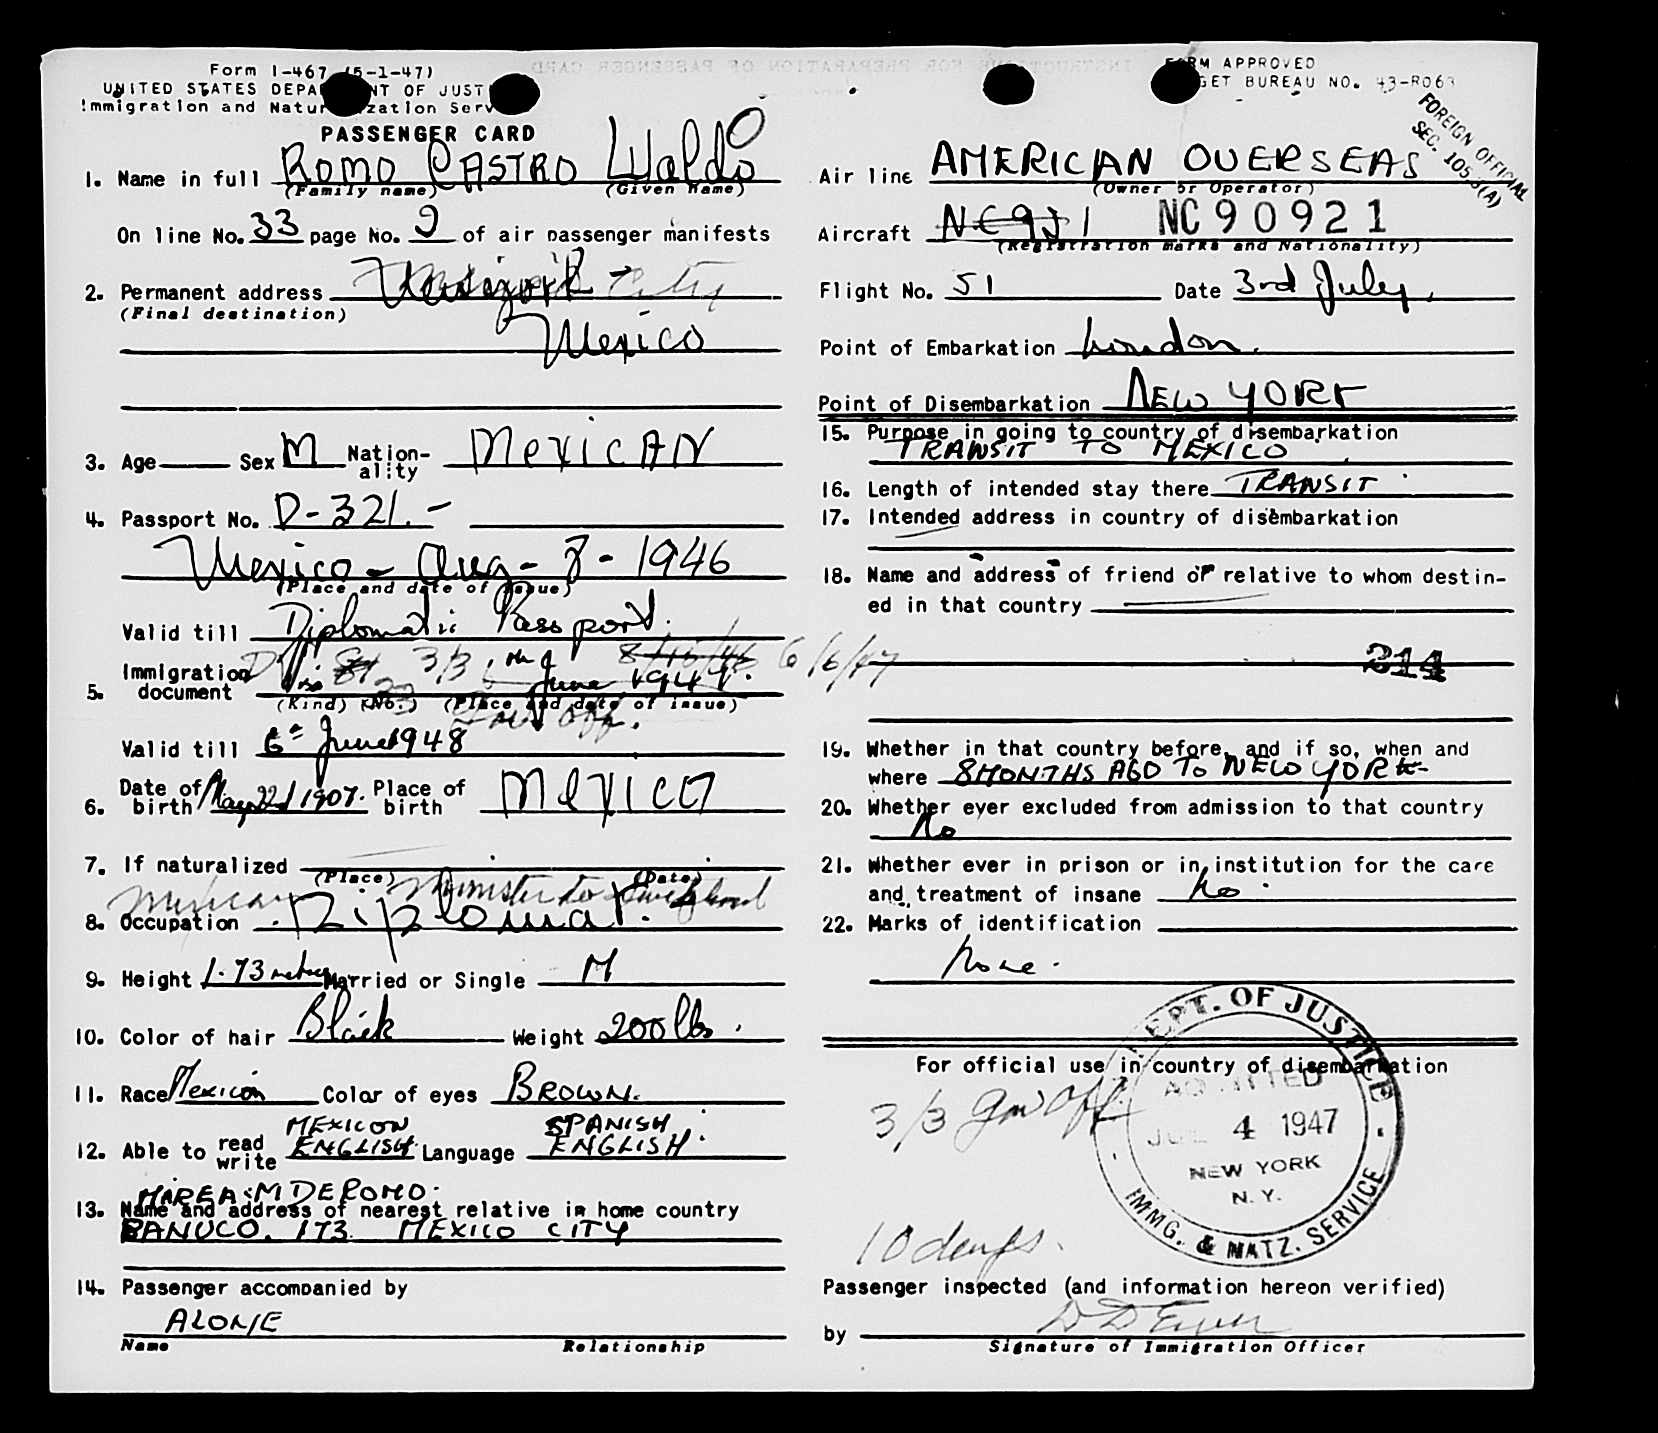 Form I-467 (5-1-47)
UNITED STATES DEPA NT OF JUST
Immigration and Natur zation Serv
PASSENGER CARD
1. Name in full ROMO CASTRO Waldo
(Family name) (Given name)
On line No. 33 page No. 9 of air passenger manifests
2. Permanent address City
(Final destination)
Mexico
3. Age Sex M Nation-ality MEXICAN
4. Passport No. D-321.-
Mexico - Aug - 8 - 1946
(Place and date of issue)
Valid till Diplomatic Passport.
5. Immigration document Visa 3/3 8/16/46 6/6/47
June 1947.
(Kind) (No.) (Place and date of issue)
Gov Off.
Valid till 6th June 1948
6. Date of birth May 22d 1907. Place of birth MEXICO
7. If naturalized
(Place) (Date)
Mexican Minister to Switzerland
8. Occupation Diplomat.
9. Height 1.73 metres Married or Single M
10. Color of hair Black Weight 200 lbs.
11. Race Mexicon Color of eyes BROWN.
MEXICON SPANISH
12. Able to read write ENGLISH. Language ENGLISH.
MIREA M DE ROMO.
13. Name and address of nearest relative in home country
PANUCO. 173 MEXICO CITY
14. Passenger accompanied by
ALONE
Name Relationship
FORM APPROVED
GET BUREAU NO. 43-R063
FOREIGN OFFICIAL
SEC. 105.3(A)
Air line AMERICAN OVERSEAS
(Owner or Operator)
Aircraft NC 91 NC90921
(Registration marks and Nationality)
Flight No. 51 Date 3rd July,
Point of Embarkation London.
Point of Disembarkation NEW YORK
15. Purpose in going to country of disembarkation
TRANSIT TO MEXICO
16. Length of intended stay there TRANSIT
17. Intended address in country of disembarkation
18. Name and address of friend or relative to whom destin-
ed in that country
314
19. Whether in that country before, and if so, when and
where 8 MONTHS AGO TO NEW YORK
20. Whether ever excluded from admission to that country
No
21. Whether ever in prison or in institution for the care
and treatment of insane No.
22. Marks of identification
None.
For official use in country of disembarkation
3/3 Gov Off
DEPT. OF JUSTICE
ADMITTED
JUL 4 1947
NEW YORK
N.Y.
IMMG. & NATZ. SERVICE
10 days.
Passenger inspected (and information hereon verified)
by
Signature of Immigration Officer